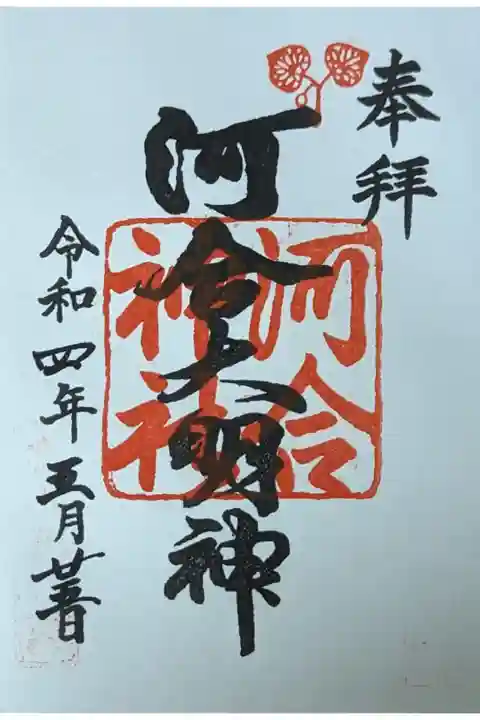 奉拝
河合大明神
河合
神社
令和四年五月廿日